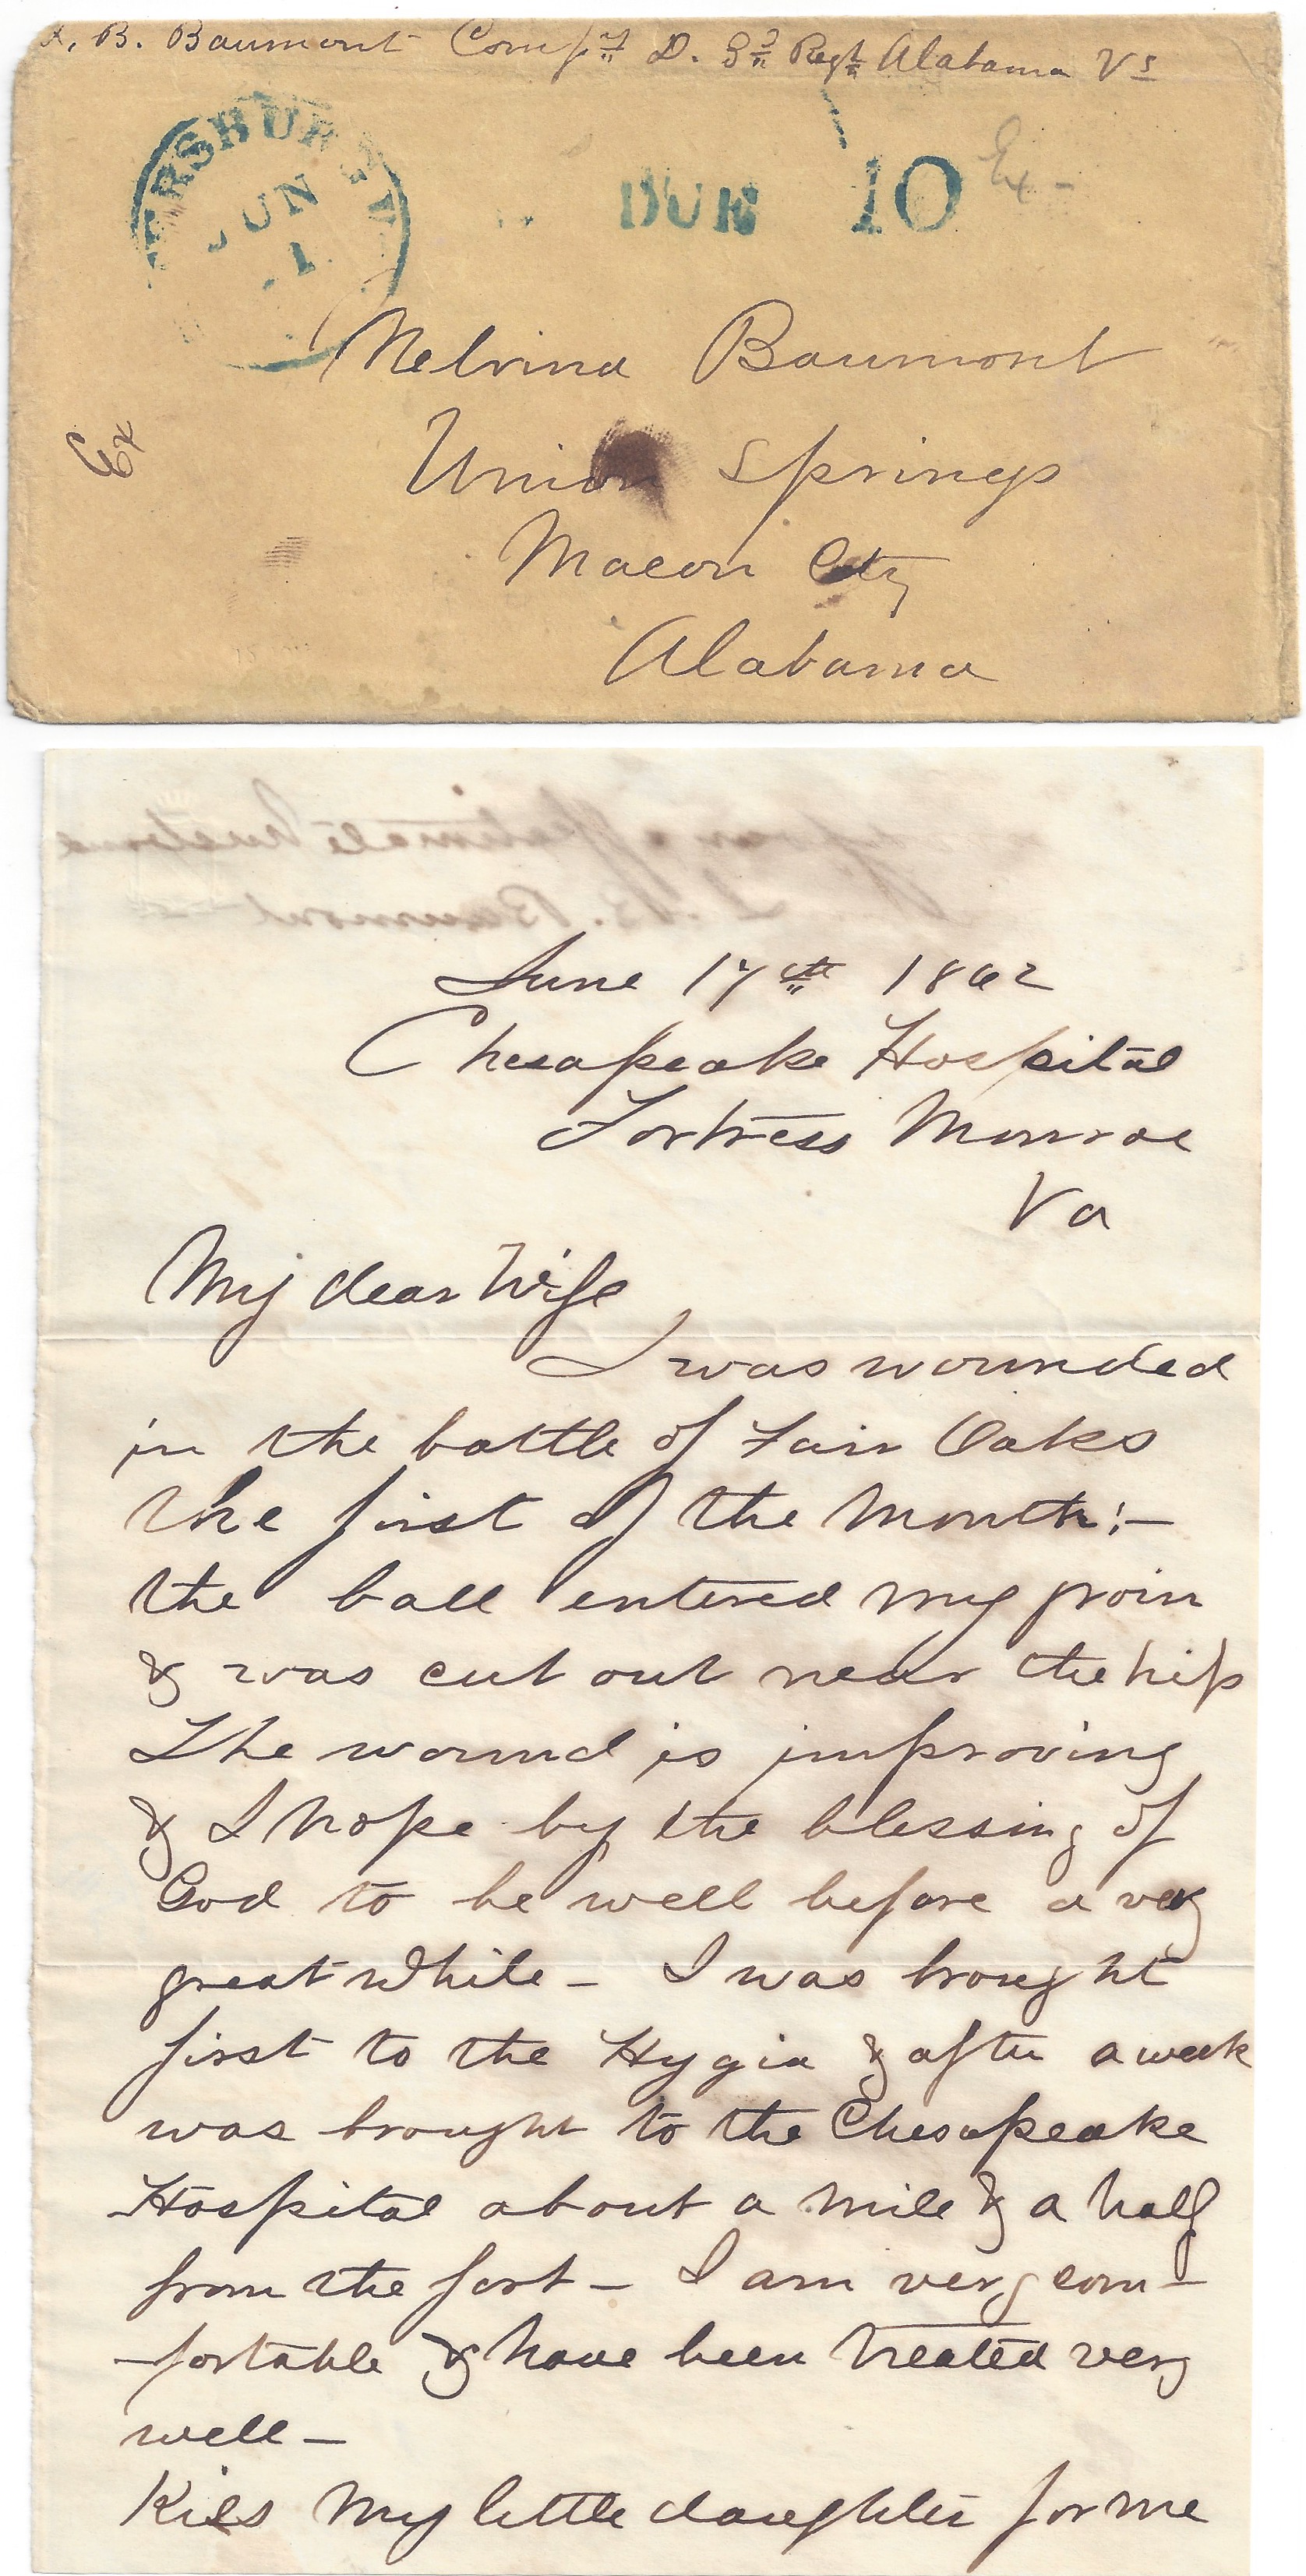 L. B. Baumont Compy D. 3d Regt Alabama Vs
ERSBURG VA
JUN
1
DUE 10
Ex
Melvina Baumont
Union Springs
Ex
Macon Cty
Alabama
affectionate husband
L. B. Baumont
June 17th 1862
Chesapeake Hospital
Fortress Monroe
Va
My dear Wife
I was wounded
in the battle of Fair Oaks
the first of the Month:-
the ball entered my groin
& was cut out near the hip
The wound is improving
& I hope by the blessing of
God to be well before a very
great while - I was brought
first to the Hygia & after a week
was brought to the Chesapeake
Hospital about a mile & a half
from the fort - I am very com-
-fortable & have been treated very
well -
Kiss my little daughter for me